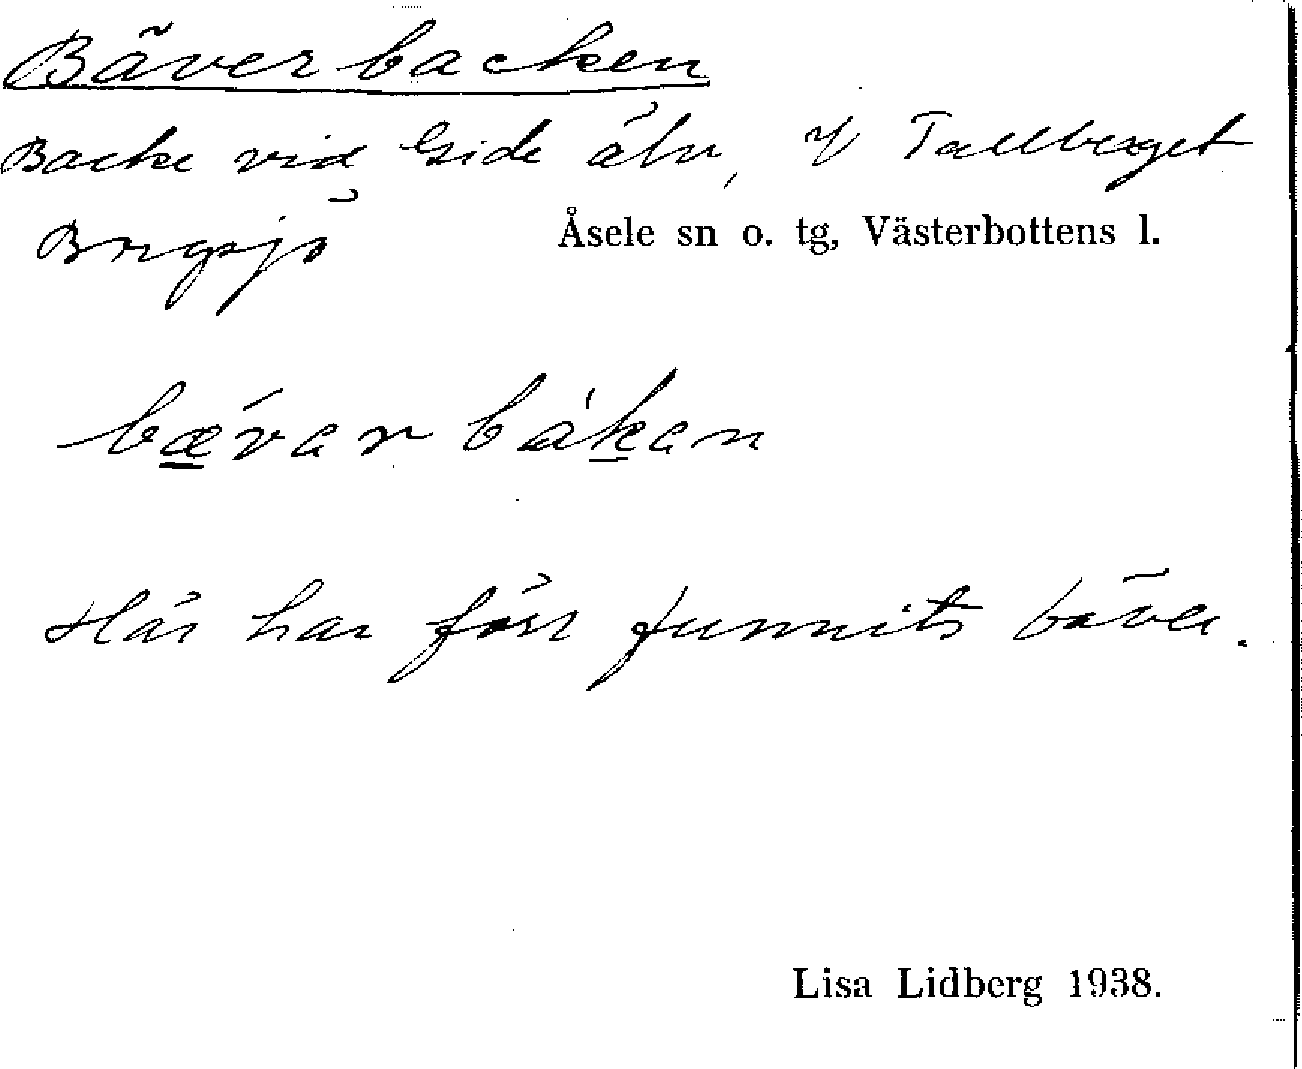 Bäverbacken
Backe vid Gide älv, V Tallberget
Borgsjö
Åsele sn o. tg, Västerbottens l.
bǽ̲var bák̲an
Här har förr funnits bäver.
Lisa Lidberg 1938.